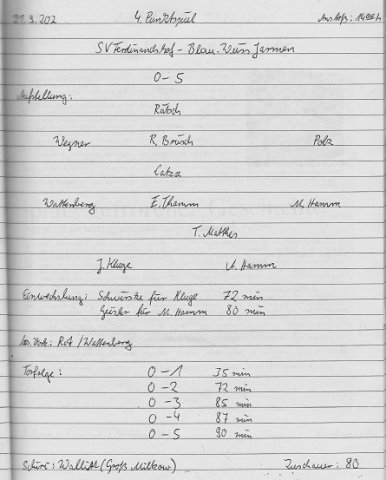 4. Punktspiel
SV Ferdinandshof - Blau-Weiss Jarmen
0-5
Aufstellung:
Rätsch
Wegner R. Brüsch Polz
Catza
Wattenberg E. Thamm M. Hamm
T. Mathes
J. Kluge A. Hamm
Einwechslung: für Kluge 72 min
für M. Hamm 80 min
Rot / Wattenberg
Torfolge: 0-1 35 min
0-2 72 min
0-3 85 min
0-4 87 min
0-5 90 min
Schiri: (Groß Miltzow) Zuschauer: 80